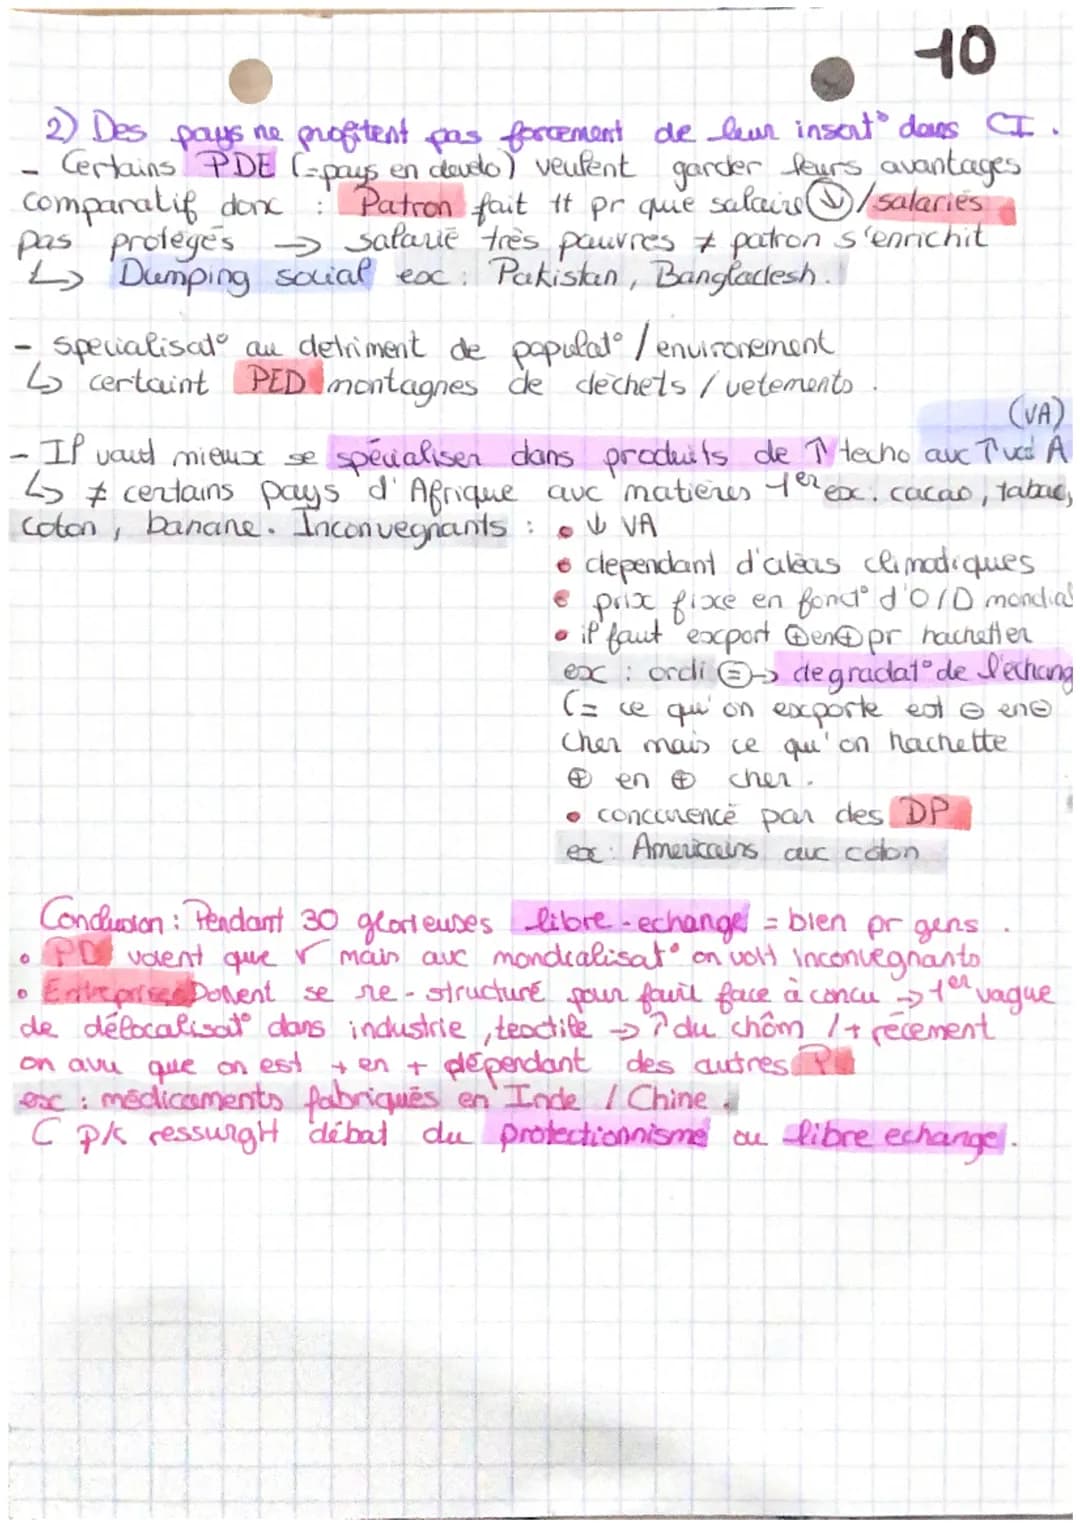 10
2) Des pays ne profitent pas forcement de leur insert° dans CI.
- Certains PDE (=pays en develo) veulent garder leurs avantages
comparatif donc : Patron fait tt pr que salaire ↓ / salariés
pas protégés → salarié très pauvres ≠ patron s'enrichit
↳ Dumping social ex : Pakistan, Bangladesh.
- specialisat° au detriment de populat° / environement
↳ certaint PED montagnes de déchets / vetements.
(VA)
- Il vaut mieux se spécialiser dans produits de ↑ techo avc ↑ A
↳ ≠ certains pays d'Afrique avc matieres 1er ex. cacao, tabac,
coton, banane. Inconvegnants : • ↓ VA
• dependant d'aléas climatiques
• prix fixe en fonct° d'O/D mondial
• il faut export ⊕ en ⊕ pr hachetter
ex : ordi ⊜→ degradat° de l'echang
(= ce qu'on exporte est ⊖ en ⊖
cher mais ce qu'on hachette
⊕ en ⊕ cher.
• concurencé par des DP
ex : Americains avc coton
Conclusion : Pendant 30 glorieuses libre-echange = bien pr gens.
• PD voient que √ main avc mondialisat° on voit inconvegnants
• Entreprises Doivent se re-structuré pour fair face à concu → 1er vague
de délocalisat° dans industrie, textile → ↗ du chôm / + récement
on avu que on est + en + dépendant des autres P
ex : médicaments fabriqués en Inde / Chine.
C pk ressurgit débat du protectionnisme ou libre echange.